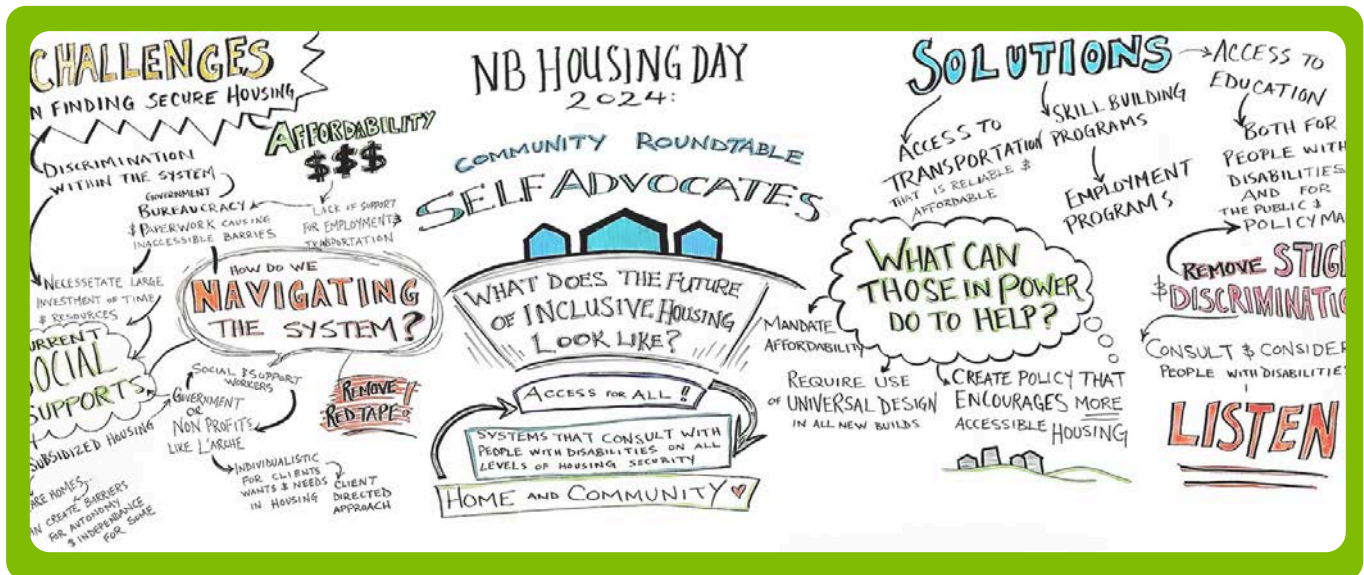 CHALLENGES
N FINDING SECURE HOUSING
AFFORDABILITY
$$$
DISCRIMINATION
WITHIN THE SYSTEM
GOVERNMENT
BUREAUCRACY
& PAPERWORK CAUSING
INACCESSIBLE BARRIES
LACK OF SUPPORT
FOR EMPLOYMENT &
TRANSPORTATION
NECESSETATE LARGE
INVESTMENT OF TIME
& RESOURCES
HOW DO WE
NAVIGATING
THE SYSTEM?
URRENT
SOCIAL
SUPPORTS
SUBSIDIZED HOUSING
ARE HOMES...
AN CREATE BARRIERS
FOR AUTONOMY
& INDEPENDANCE
FOR SOME
SOCIAL & SUPPORT
WORKERS
GOVERNMENT
OR
NON PROFITS
LIKE L'ARCHE
INDIVIDUALISTIC
FOR CLIENTS
WANTS & NEEDS
IN HOUSING
CLIENT
DIRECTED
APPROACH
REMOVE
RED TAPE!
NB HOUSING DAY
2024:
COMMUNITY ROUNDTABLE
SELF ADVOCATES
WHAT DOES THE FUTURE
OF INCLUSIVE HOUSING
LOOK LIKE?
ACCESS FOR ALL!!
SYSTEMS THAT CONSULT WITH
PEOPLE WITH DISABILITIES ON ALL
LEVELS OF HOUSING SECURITY
HOME AND COMMUNITY
SOLUTIONS
ACCESS TO
TRANSPORTATION
THAT IS RELIABLE &
AFFORDABLE
SKILL BUILDING
PROGRAMS
EMPLOYMENT
PROGRAMS
ACCESS TO
EDUCATION
BOTH FOR
PEOPLE WITH
DISABILITIES
AND FOR
THE PUBLIC &
POLICY MA
REMOVE STIG
& DISCRIMINATIO
WHAT CAN
THOSE IN POWER
DO TO HELP?
MANDATE
AFFORDABILITY
REQUIRE USE
OF UNIVERSAL DESIGN
IN ALL NEW BUILDS
CREATE POLICY THAT
ENCOURAGES MORE
ACCESSIBLE HOUSING
CONSULT & CONSIDER
PEOPLE WITH DISABILITIES
LISTEN